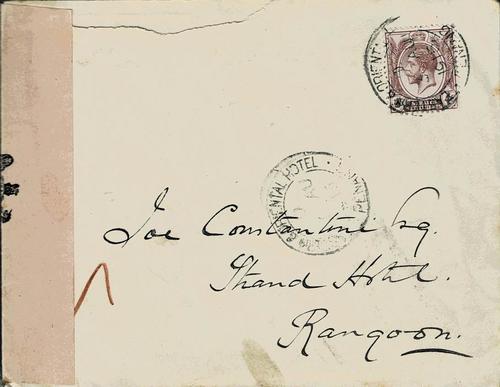 ORIENTAL HOTEL
Joe Constantine Esq.
Strand Hotel.
Rangoon.